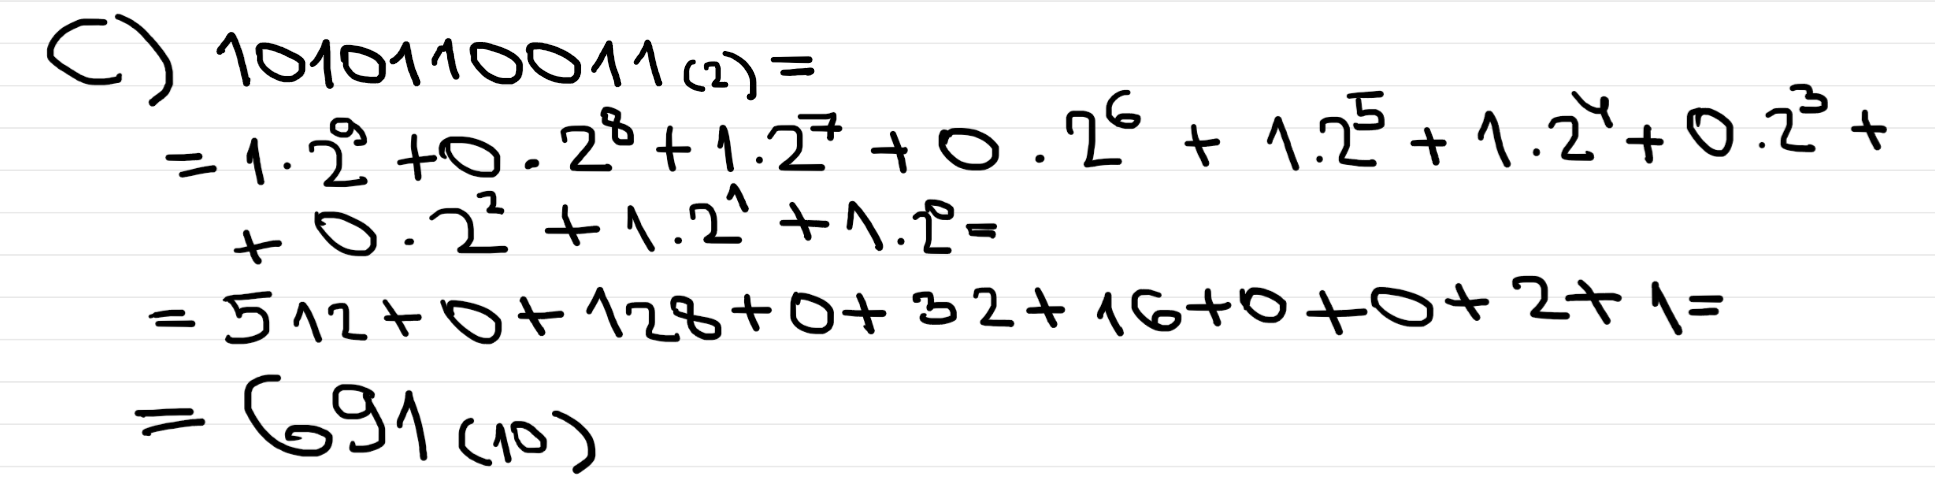 C) 1010110011₍₂₎ =
= 1·2⁹ + 0·2⁸ + 1·2⁷ + 0·2⁶ + 1·2⁵ + 1·2⁴ + 0·2³ +
+ 0·2² + 1·2¹ + 1·2⁰ =
= 512 + 0 + 128 + 0 + 32 + 16 + 0 + 0 + 2 + 1 =
= 691₍₁₀₎